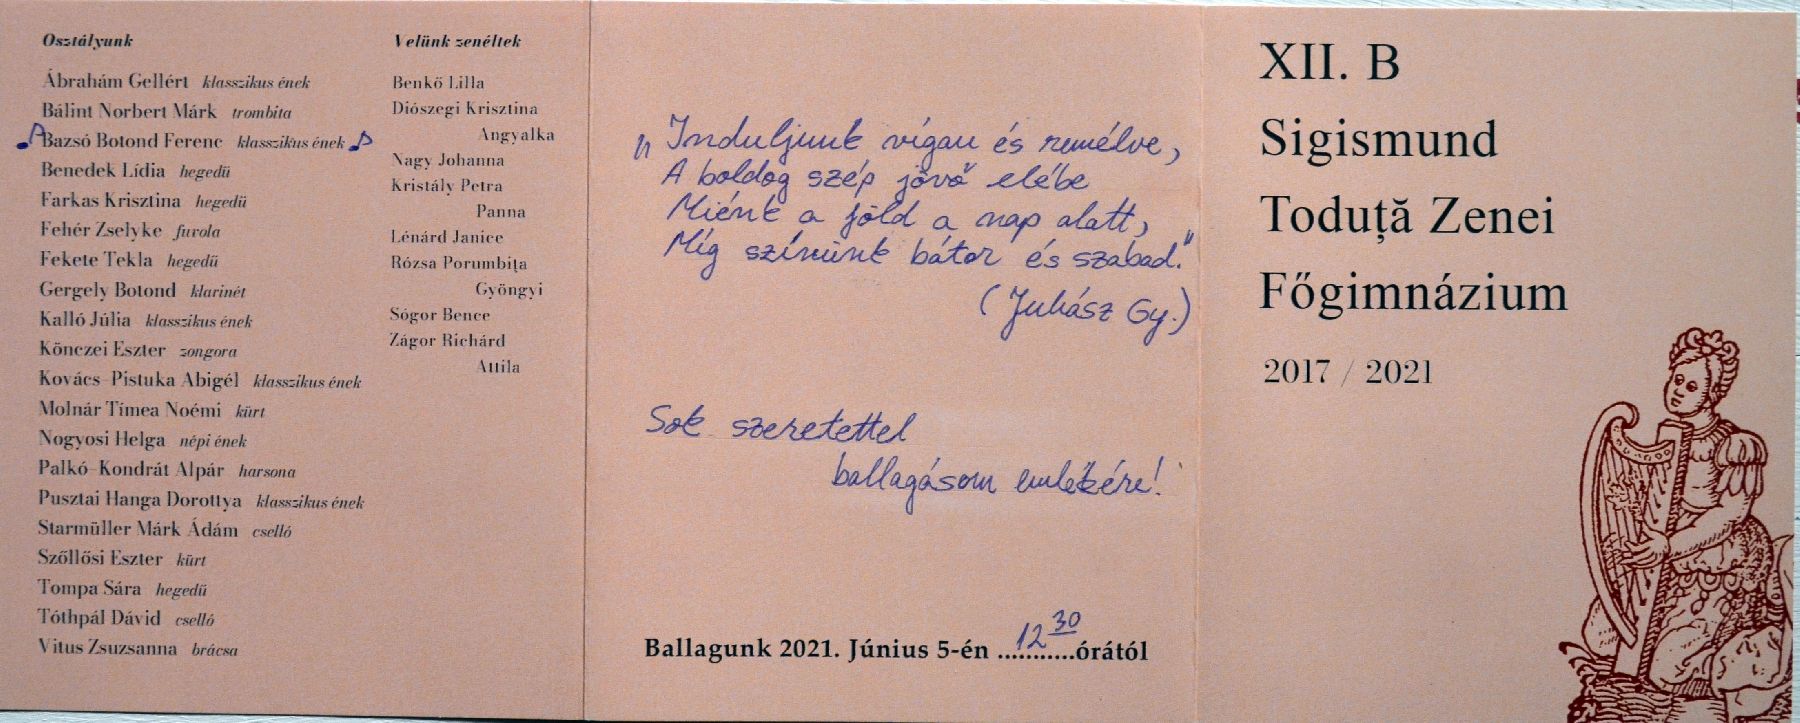 Osztályunk
Ábrahám Gellért klasszikus ének
Bálint Norbert Márk trombita
Bazsó Botond Ferenc klasszikus ének
Benedek Lídia hegedű
Farkas Krisztina hegedű
Fehér Zselyke fuvola
Fekete Tekla hegedű
Gergely Botond klarinét
Kalló Júlia klasszikus ének
Könczei Eszter zongora
Kovács-Pistuka Abigél klasszikus ének
Molnár Tímea Noémi kürt
Nogyosi Helga népi ének
Palkó-Kondrát Alpár harsona
Pusztai Hanga Dorottya klasszikus ének
Starmüller Márk Ádám cselló
Szőllősi Eszter kürt
Tompa Sára hegedű
Tóthpál Dávid cselló
Vitus Zsuzsanna brácsa
Velünk zenéltek
Benkő Lilla
Diószegi Krisztina
Angyalka
Nagy Johanna
Kristály Petra
Panna
Lénárd Janice
Rózsa Porumbița
Gyöngyi
Sógor Bence
Zágor Richárd
Attila
„Induljunk vígan és remélve,
A boldog szép jövő elébe
Miénk a föld a nap alatt,
Míg szívünk bátor és szabad."
(Juhász Gy.)
Sok szeretettel
ballagásom emlékére!
Ballagunk 2021. Június 5-én ...12 30...órától
XII. B
Sigismund
Toduță Zenei
Főgimnázium
2017 / 2021